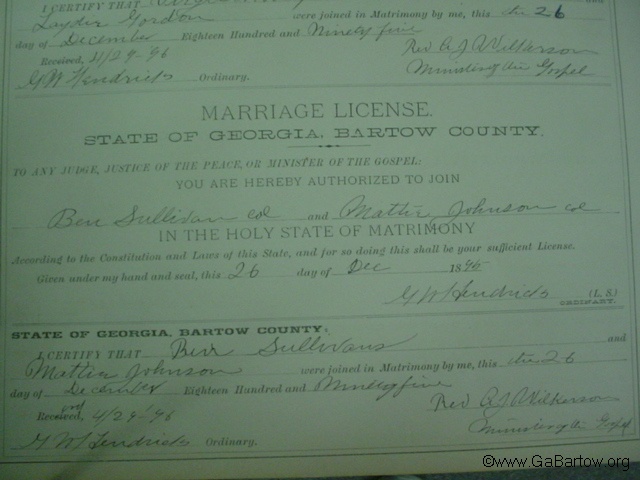 I CERTIFY THAT
Layder Gordon were joined in Matrimony by me, this the 26
day of December Eighteen Hundred and Ninety five
Received, 4/29-96 Rev A. J. Wilkerson
G W Hendricks Ordinary. Minister of the Gospel
MARRIAGE LICENSE.
STATE OF GEORGIA, BARTOW COUNTY.
TO ANY JUDGE, JUSTICE OF THE PEACE, OR MINISTER OF THE GOSPEL:
YOU ARE HEREBY AUTHORIZED TO JOIN
Ben Sullivan col and Mattie Johnson col
IN THE HOLY STATE OF MATRIMONY
According to the Constitution and Laws of this State, and for so doing this shall be your sufficient License.
Given under my hand and seal, this 26 day of Dec 1895
G W Hendricks (L. S.)
ORDINARY.
STATE OF GEORGIA, BARTOW COUNTY.
I CERTIFY THAT Ben Sullivans and
Mattie Johnson were joined in Matrimony by me, this the 26
day of December Eighteen Hundred and Ninety five
Received, 4/29-96 Rev A. J. Wilkerson
G W Hendricks Ordinary. Minister of the Gospel
©www.GaBartow.org